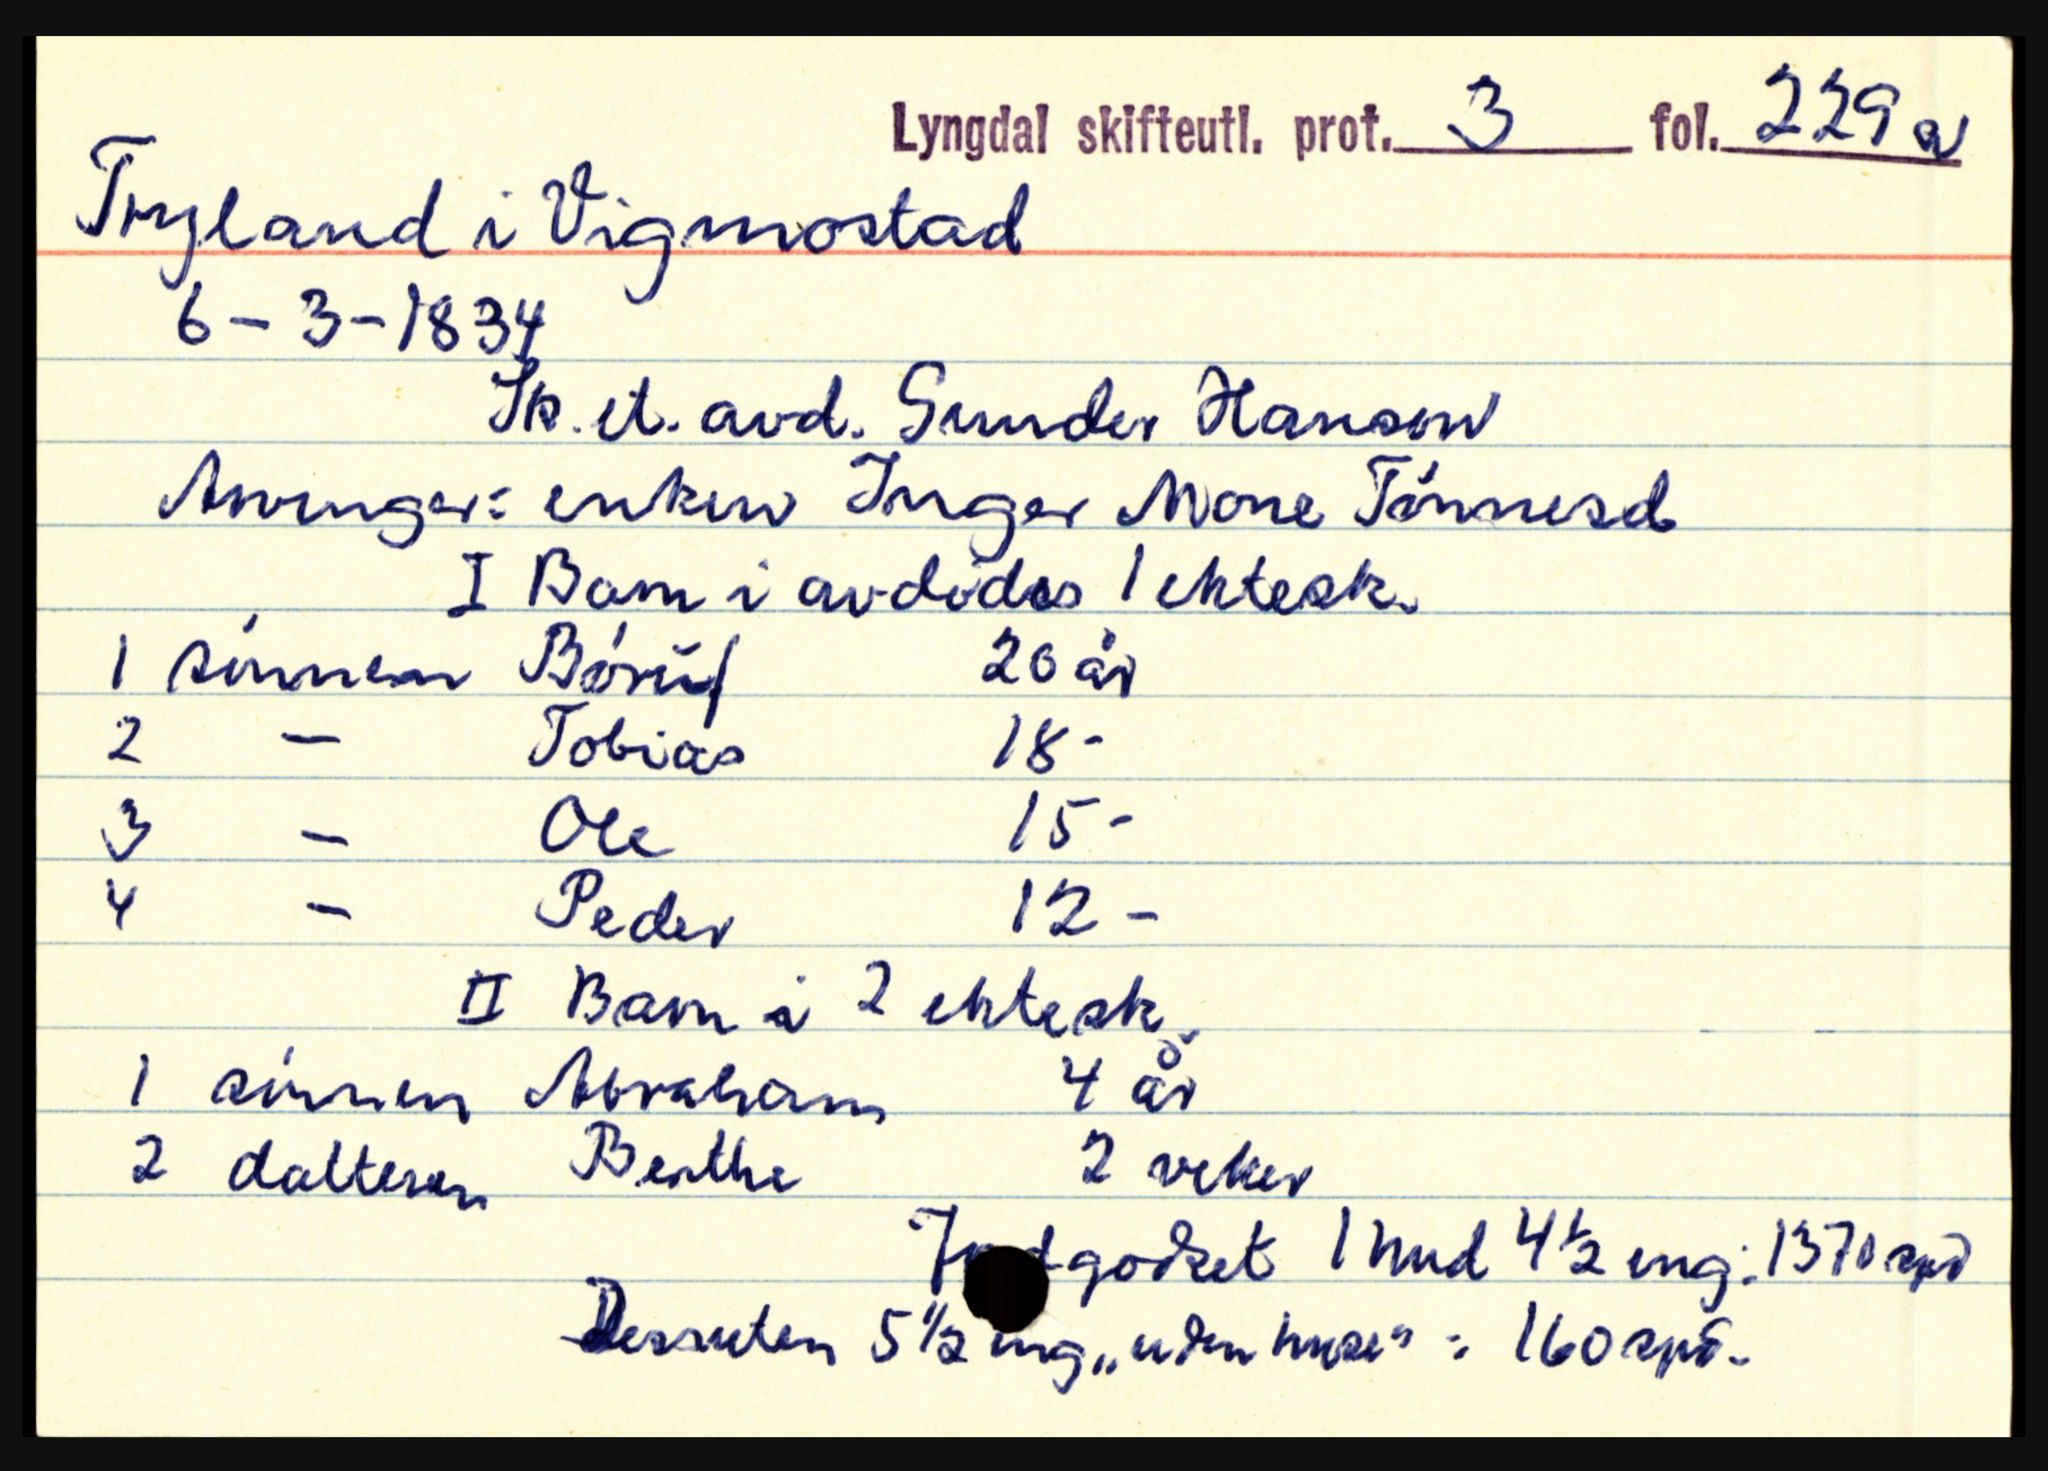 Lyngdal skifteutl. prot. 3 fol. 229 a
Tryland i Vigmostad
6-3-1834
Sk. et. avd. Gunder Hansen
Arvinger: enken Inger Mone Tónnesd
I Barn i avdódes 1 ektesk.
1 sónnen Bórüf 20 år
2 - Tobias 18-
3 - Ole 15-
4 - Peder 12-
II Barn i 2 ektesk.
1 sónnen Abraham 4 år
2 datteren Berthe 2 veker
Jordgodset 1 hud 4½ eng: 1370 spd
Dessuten 5½ eng „uden huse" : 160 spd.